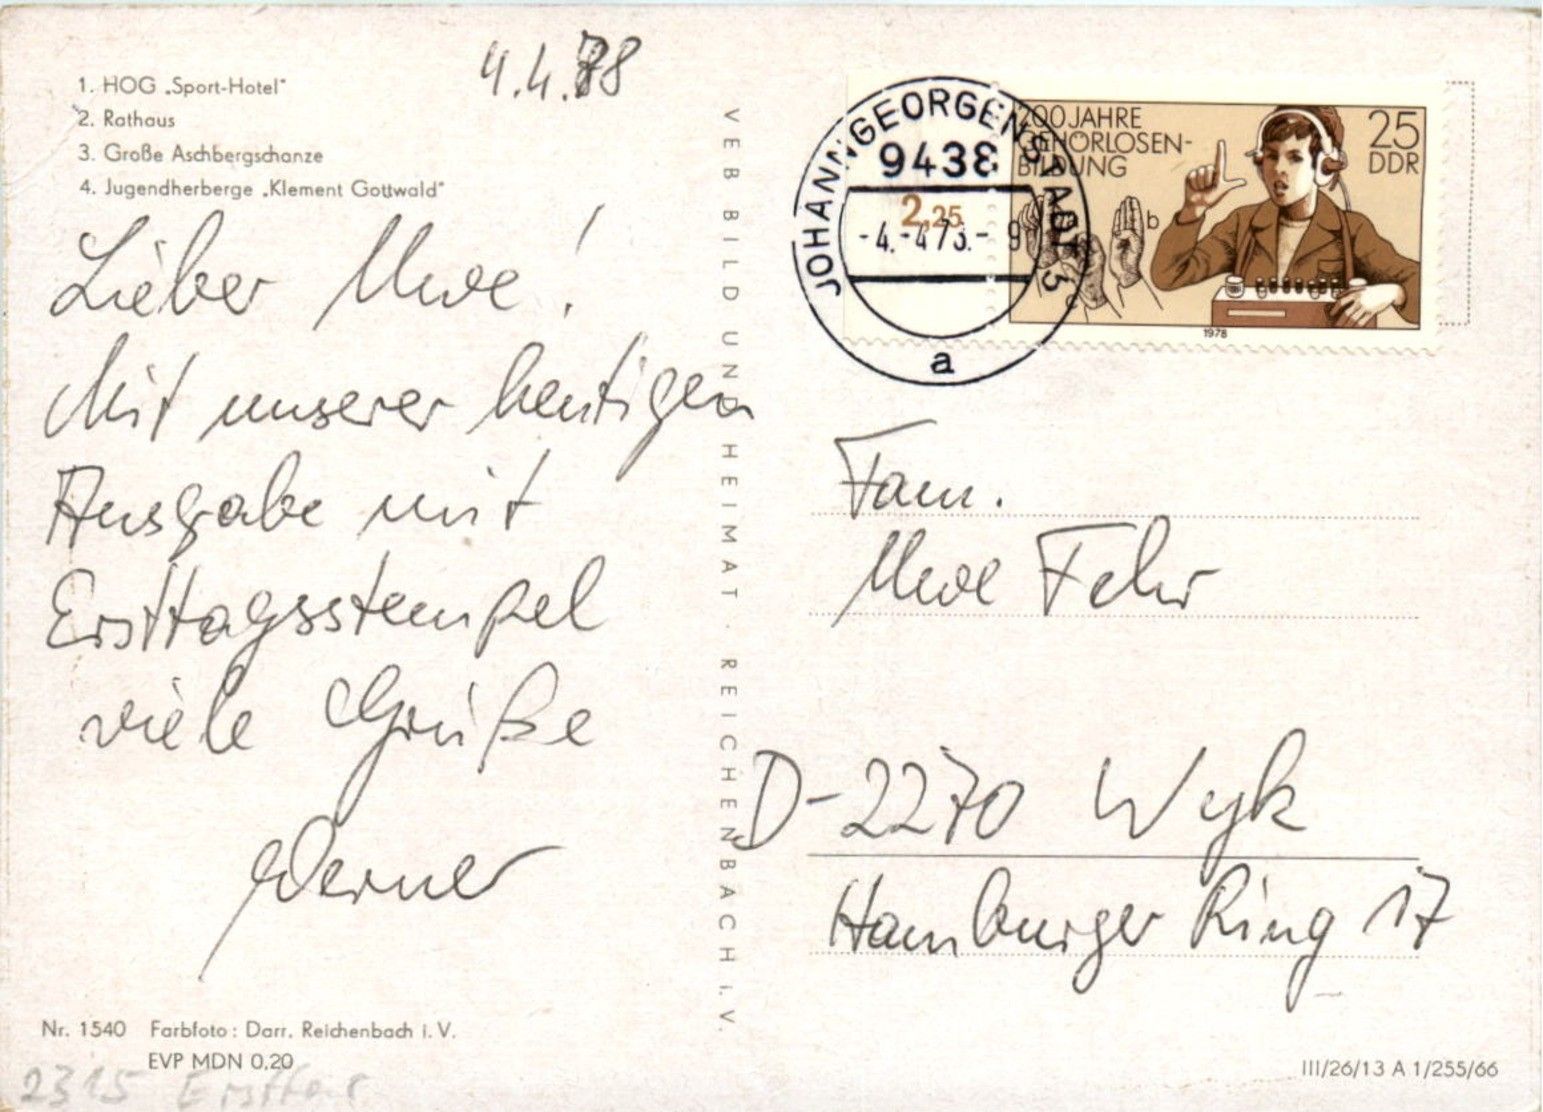 1. HOG „Sport-Hotel"
2. Rathaus
3. Große Aschbergschanze
4. Jugendherberge „Klement Gottwald"
4.4.78
Lieber Uwe!
Mit unserer heutigen
Ausgabe mit
Ersttagsstempel
viele Grüße
Werner
Nr. 1540 Farbfoto: Darr, Reichenbach i. V.
EVP MDN 0,20
2315
VEB BILD UND HEIMAT · REICHENBACH i. V.
JOHANNGEORGENSTADT 3
9438
-4.-4.78.-9
a
2,25
200 JAHRE
GEHÖRLOSEN-
BILDUNG
25
DDR
b
c
1978
Fam.
Uwe Fehr
D-2270 Wyk
Hamburger Ring 17
III/26/13 A 1/255/66